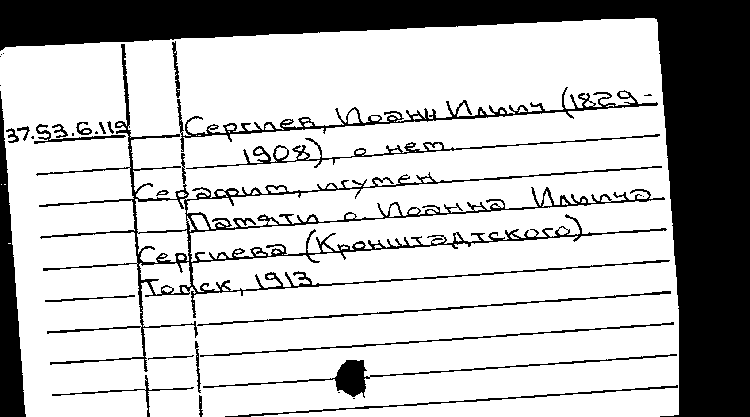 37.53.6.119 Сергиев, Иоанн Ильич (1829-
1908), о нем.
Серафим, игумен.
Памяти о. Иоанна Ильича
Сергиева (Кронштадтского).
Томск, 1913.